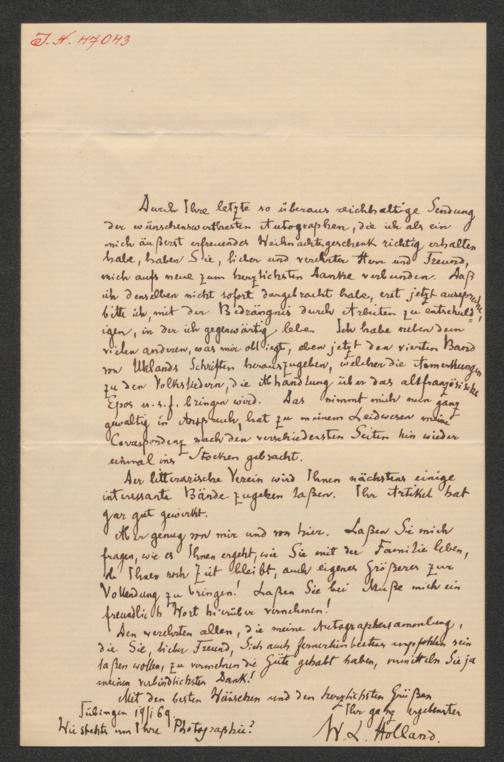 J. N. 47043
Durch Ihre letzte so überaus reichhaltige Sendung
der wünschenswerthesten Autographen, die ich als ein
mich äußerst erfreuendes Weihnachtsgeschenk richtig erhalten
habe, haben Sie, lieber und verehrter Herr und Freund,
mich aufs neue zum herzlichsten Danke verbunden. Daß
ich denselben nicht sofort dargebracht habe, erst jetzt ausspreche,
bitte ich, mit der Bedrängnis durch Arbeiten zu entschuld-
igen, in der ich gegenwärtig lebe. Ich habe neben dem
vielen anderen, was mir obliegt, eben jetzt den vierten Band
von Uhlands Schriften herauszugeben, welcher die Anmerkungen
zu den Volksliedern, die Abhandlung über das altfranzösische
Epos u. s. f. bringen wird. Das nimmt mich nun ganz
gewaltig in Anspruch, hat zu meinem Leidwesen meine
Correspondenz nach den verschiedensten Seiten hin wieder
einmal ins Stocken gebracht.
Der litterarische Verein wird Ihnen nächstens einige
interessante Bände zugehen laßen. Ihr Artikel hat
gar gut gewirkt.
Aber genug von mir und von hier. Laßen Sie mich
fragen, wie es Ihnen ergeht, wie Sie mit der Familie leben,
ob Ihnen noch Zeit bleibt, auch eigenes Größeres zur
Vollendung zu bringen! Laßen Sie bei Muße mich ein
freundlich Wort hierüber vernehmen!
Den verehrten allen, die meine Autographensammlung,
die Sie, lieber Freund, Sich auch fernerhin bestens empfohlen sein
laßen wollen, zu vermehren die Güte gehabt haben, vermitteln Sie ja
meinen verbindlichsten Dank!
Mit den besten Wünschen und den herzlichsten Grüßen
Ihr ganz ergebenster
Tübingen 19/1 69
W. L. Holland.
Wie stehts um Ihre Photographie?